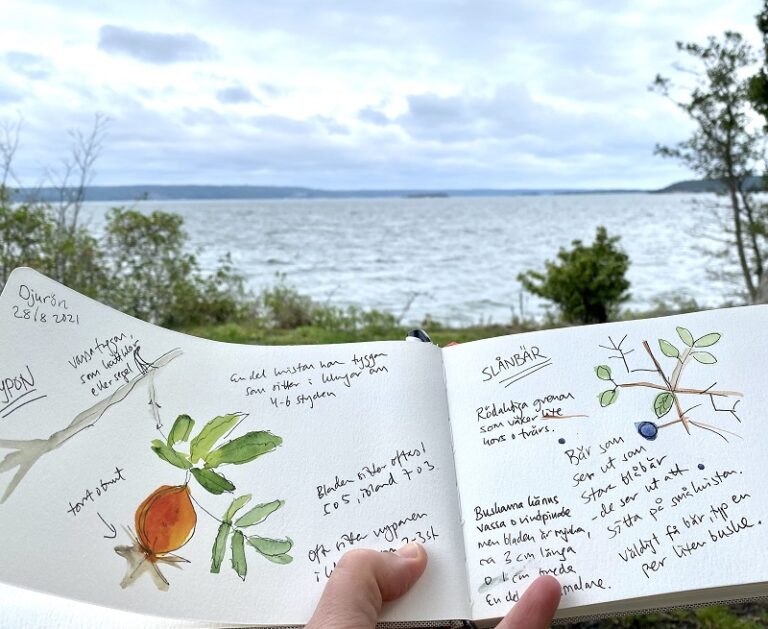 Djurön
28/8 2021
YPON
Vassa taggar,
som
eller segel
En del kvistar har taggar
som sitter i klungor om
4-6 stycken
Bladen sitter oftast
5 o 5, ibland 7 o 3
torrt o brunt
Ofta sitter nyponen
i 2-3 st
SLÅNBÄR
Rödaktiga grenar
som växer lite
kors o tvärs.
Bär som
ser ut som
stora blåbär
- de ser ut att
sitta på småkvistar.
Väldigt få bär, typ en
per liten buske.
Buskarna känns
vassa o vindpinade
men bladen är mjuka,
ca 3 cm långa
o cm breda
En del smalare.